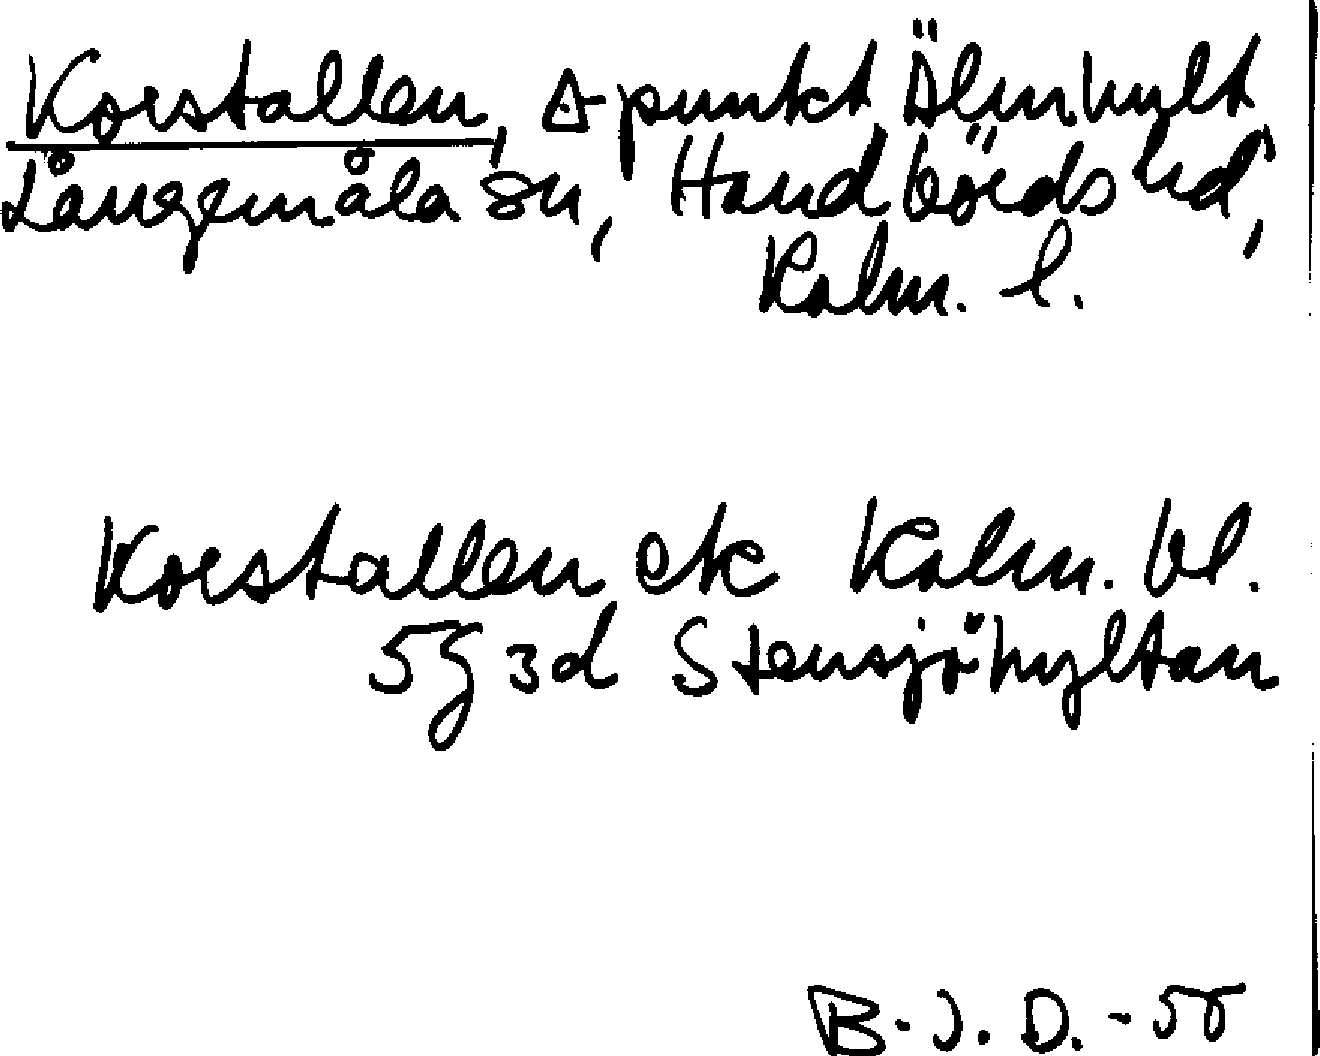 Korstallen, △-punkt, Älmhult,
Långemåla sn, Handbörds hd,
Kalm. l.
Korstallen ek Kalm. bl.
5g 3d Stensjöhyltan
B. J. D. -55